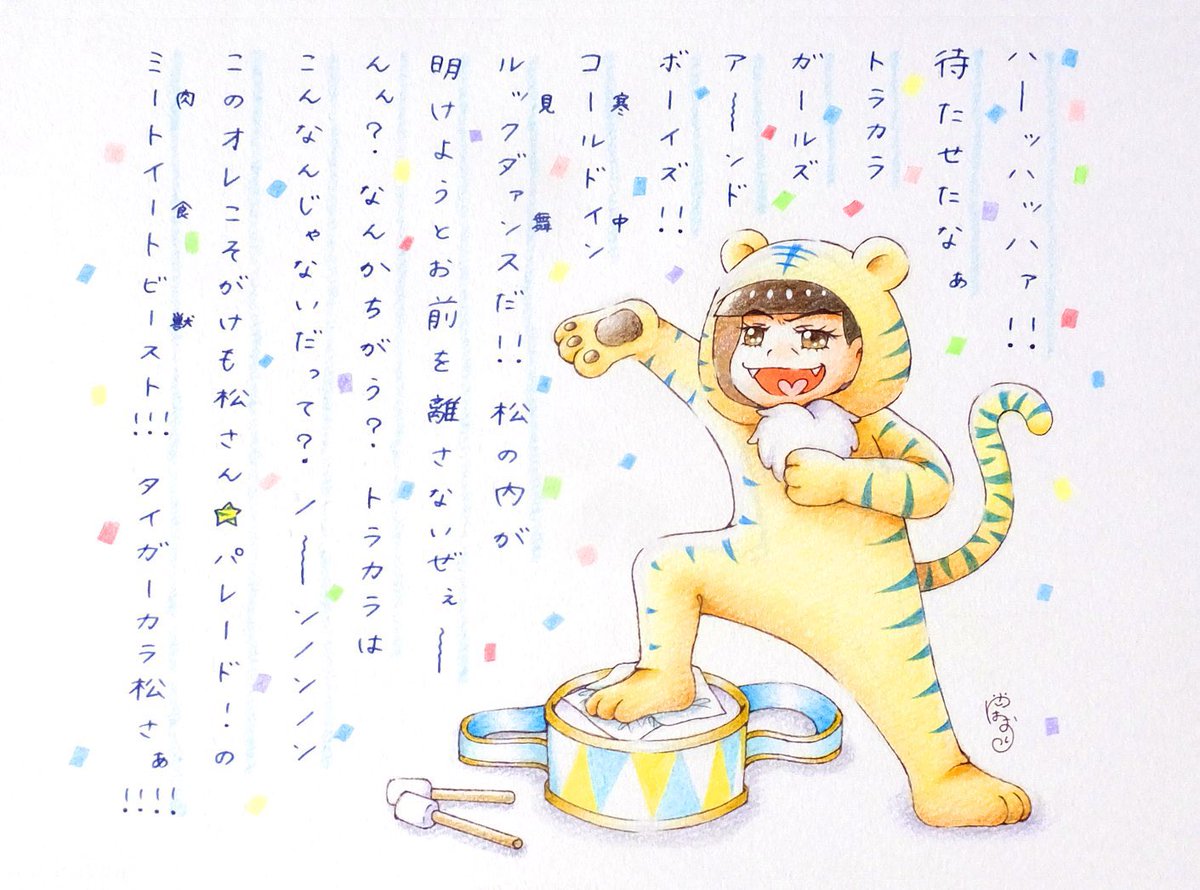 ハーッハッハァ!!
待たせたなぁ
トラカラ
ガールズ
ア〜ンド
ボーイズ!!
寒中
コールドイン
見舞
ルックダァンスだ!! 松の内が
明けようとお前を離さないぜぇ〜
んん?なんかちがう?トラカラは
こんなんじゃないだって?ノ〜ンノンノン
このオレこそがけも松さん☆パレード!の
肉食獣
ミートイートビースト!!! タイガーカラ松さぁ!!!!